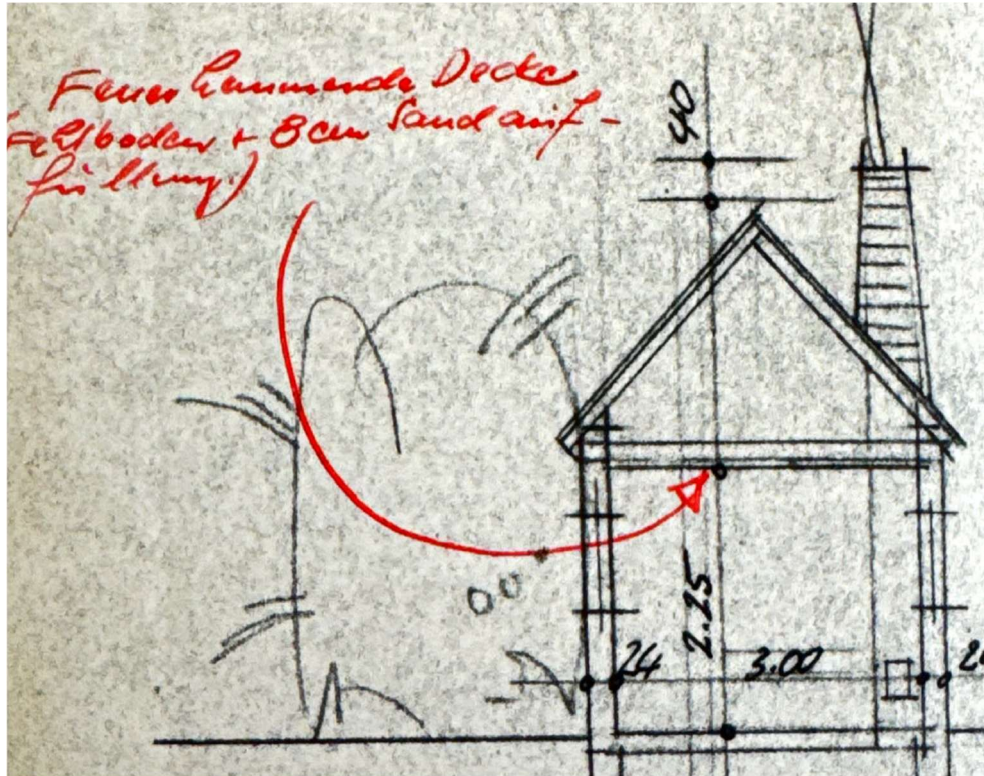 Feuerhemmende Decke
(Fehlboden + 8 cm Sandauf-
füllung.)
40
2.25
24
3.00